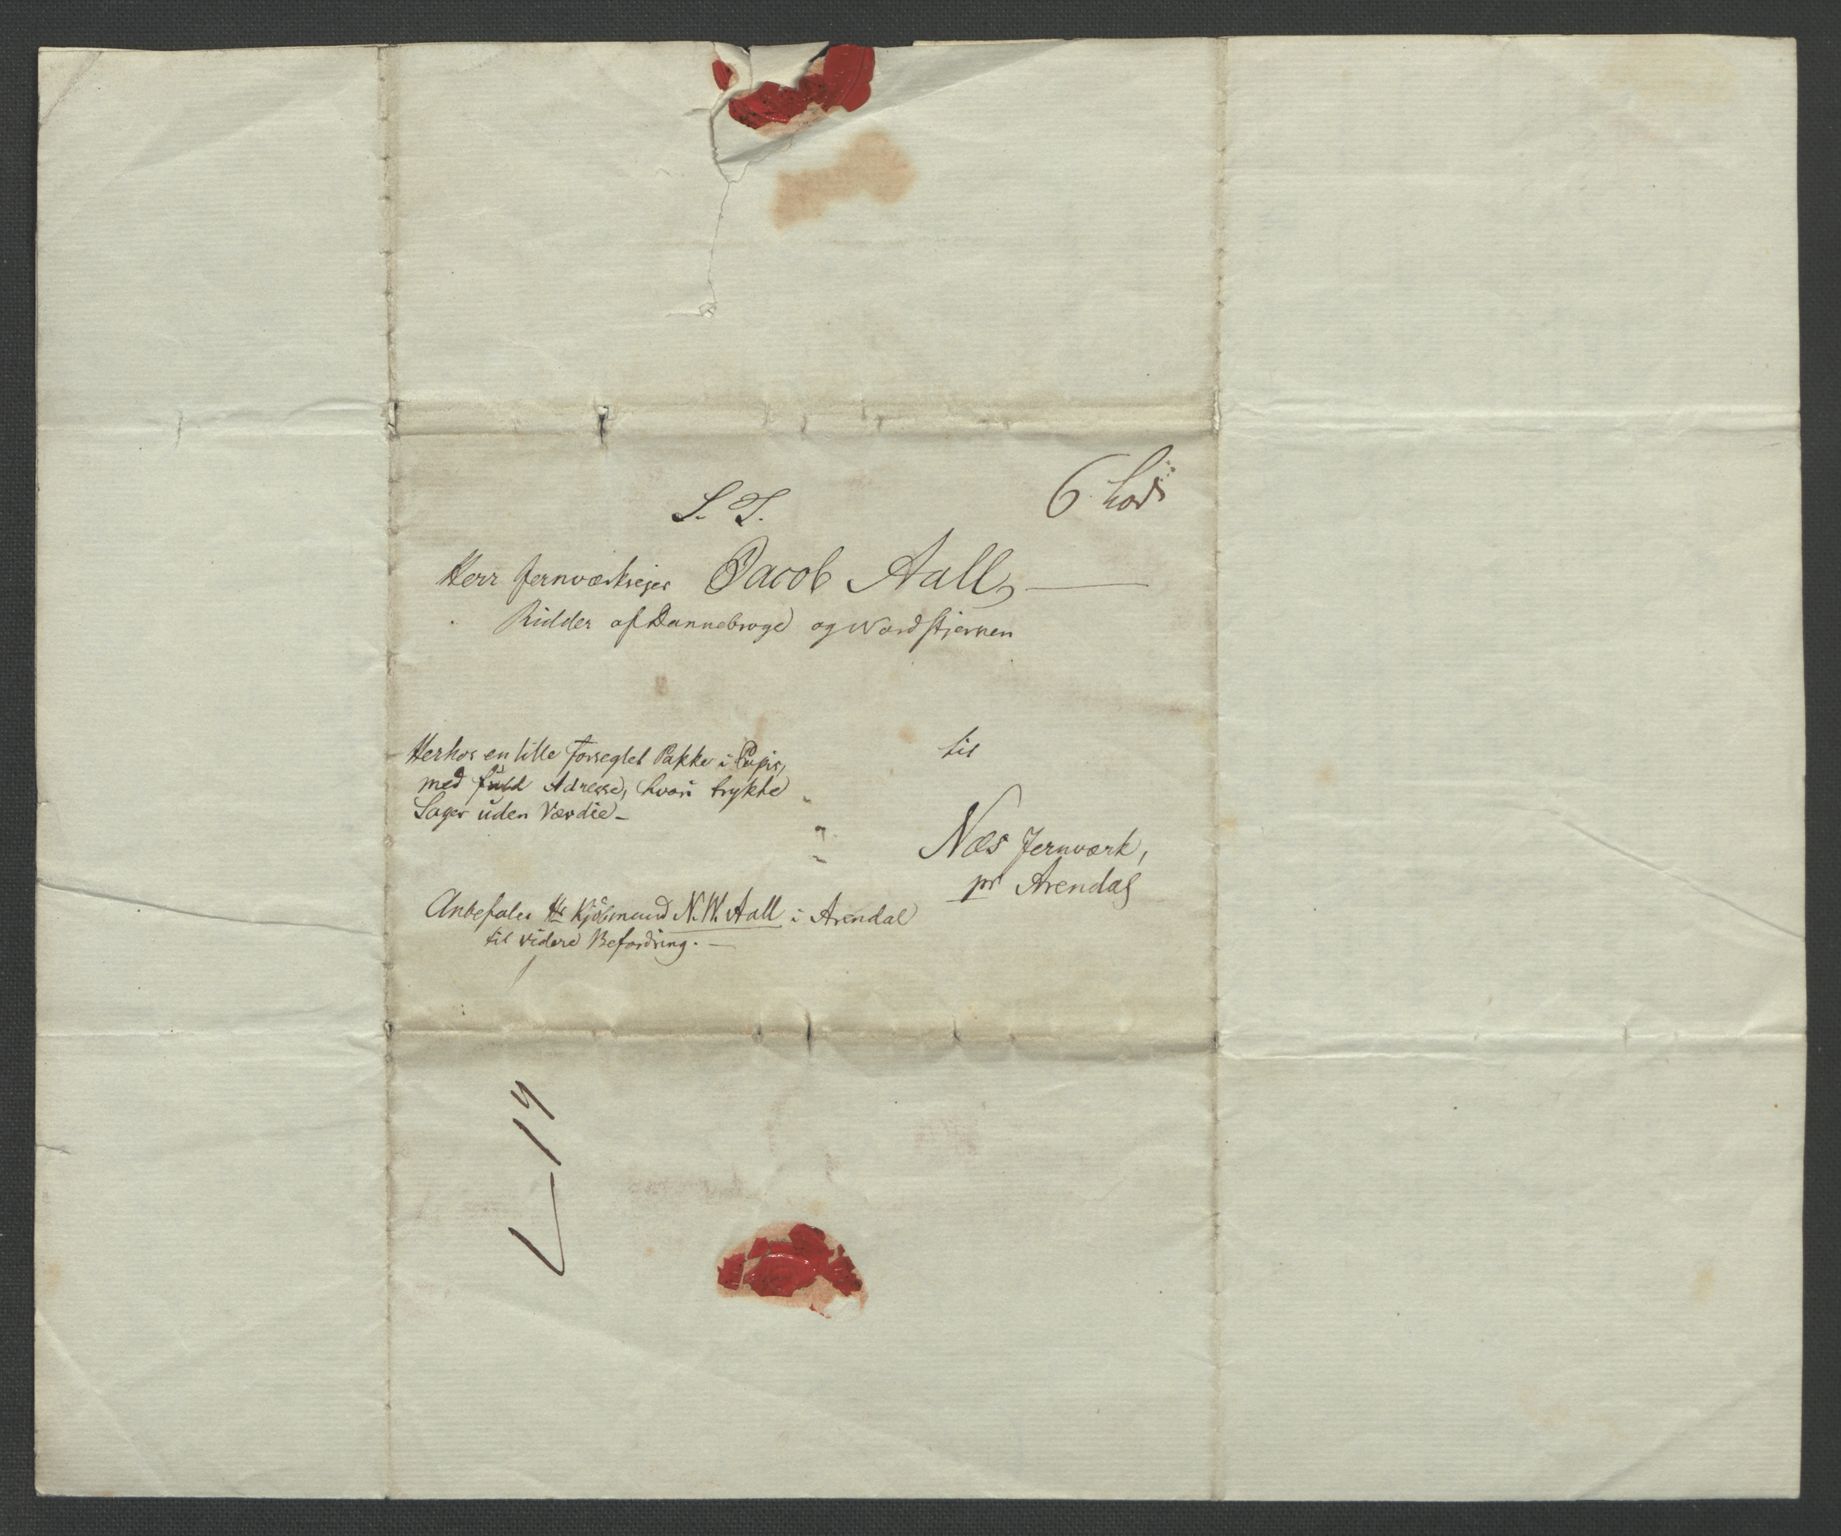 6 Lod
S. T.
Herr Jernværkseier Jacob Aall,
Ridder af Dannebroge og Nordstjernen
Herhos en lille forseglet Pakke i Papir,
med fuld Adresse, hvori trykte
Sager uden Værdie -
til
Næs Jernværk,
pr Arendal
Anbefales Hr Kjöbmand N. W. Aall i Arendal
til videre Befordring. -